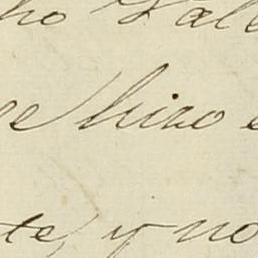 ho Vall
se hizo e
te, y no